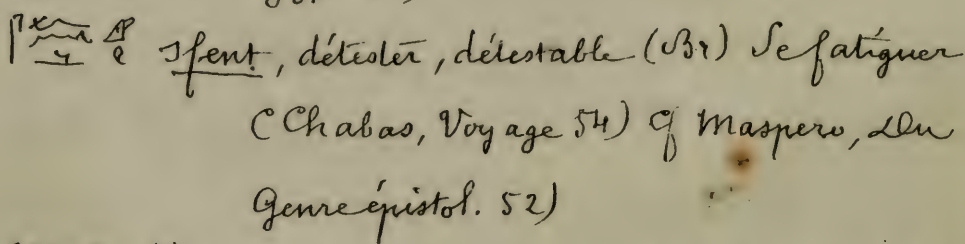 sfent, détester, détestable (Br) Se fatiguer
(Chabas, Voyage 54) Cf Maspero, Du
Genre épistol. 52)